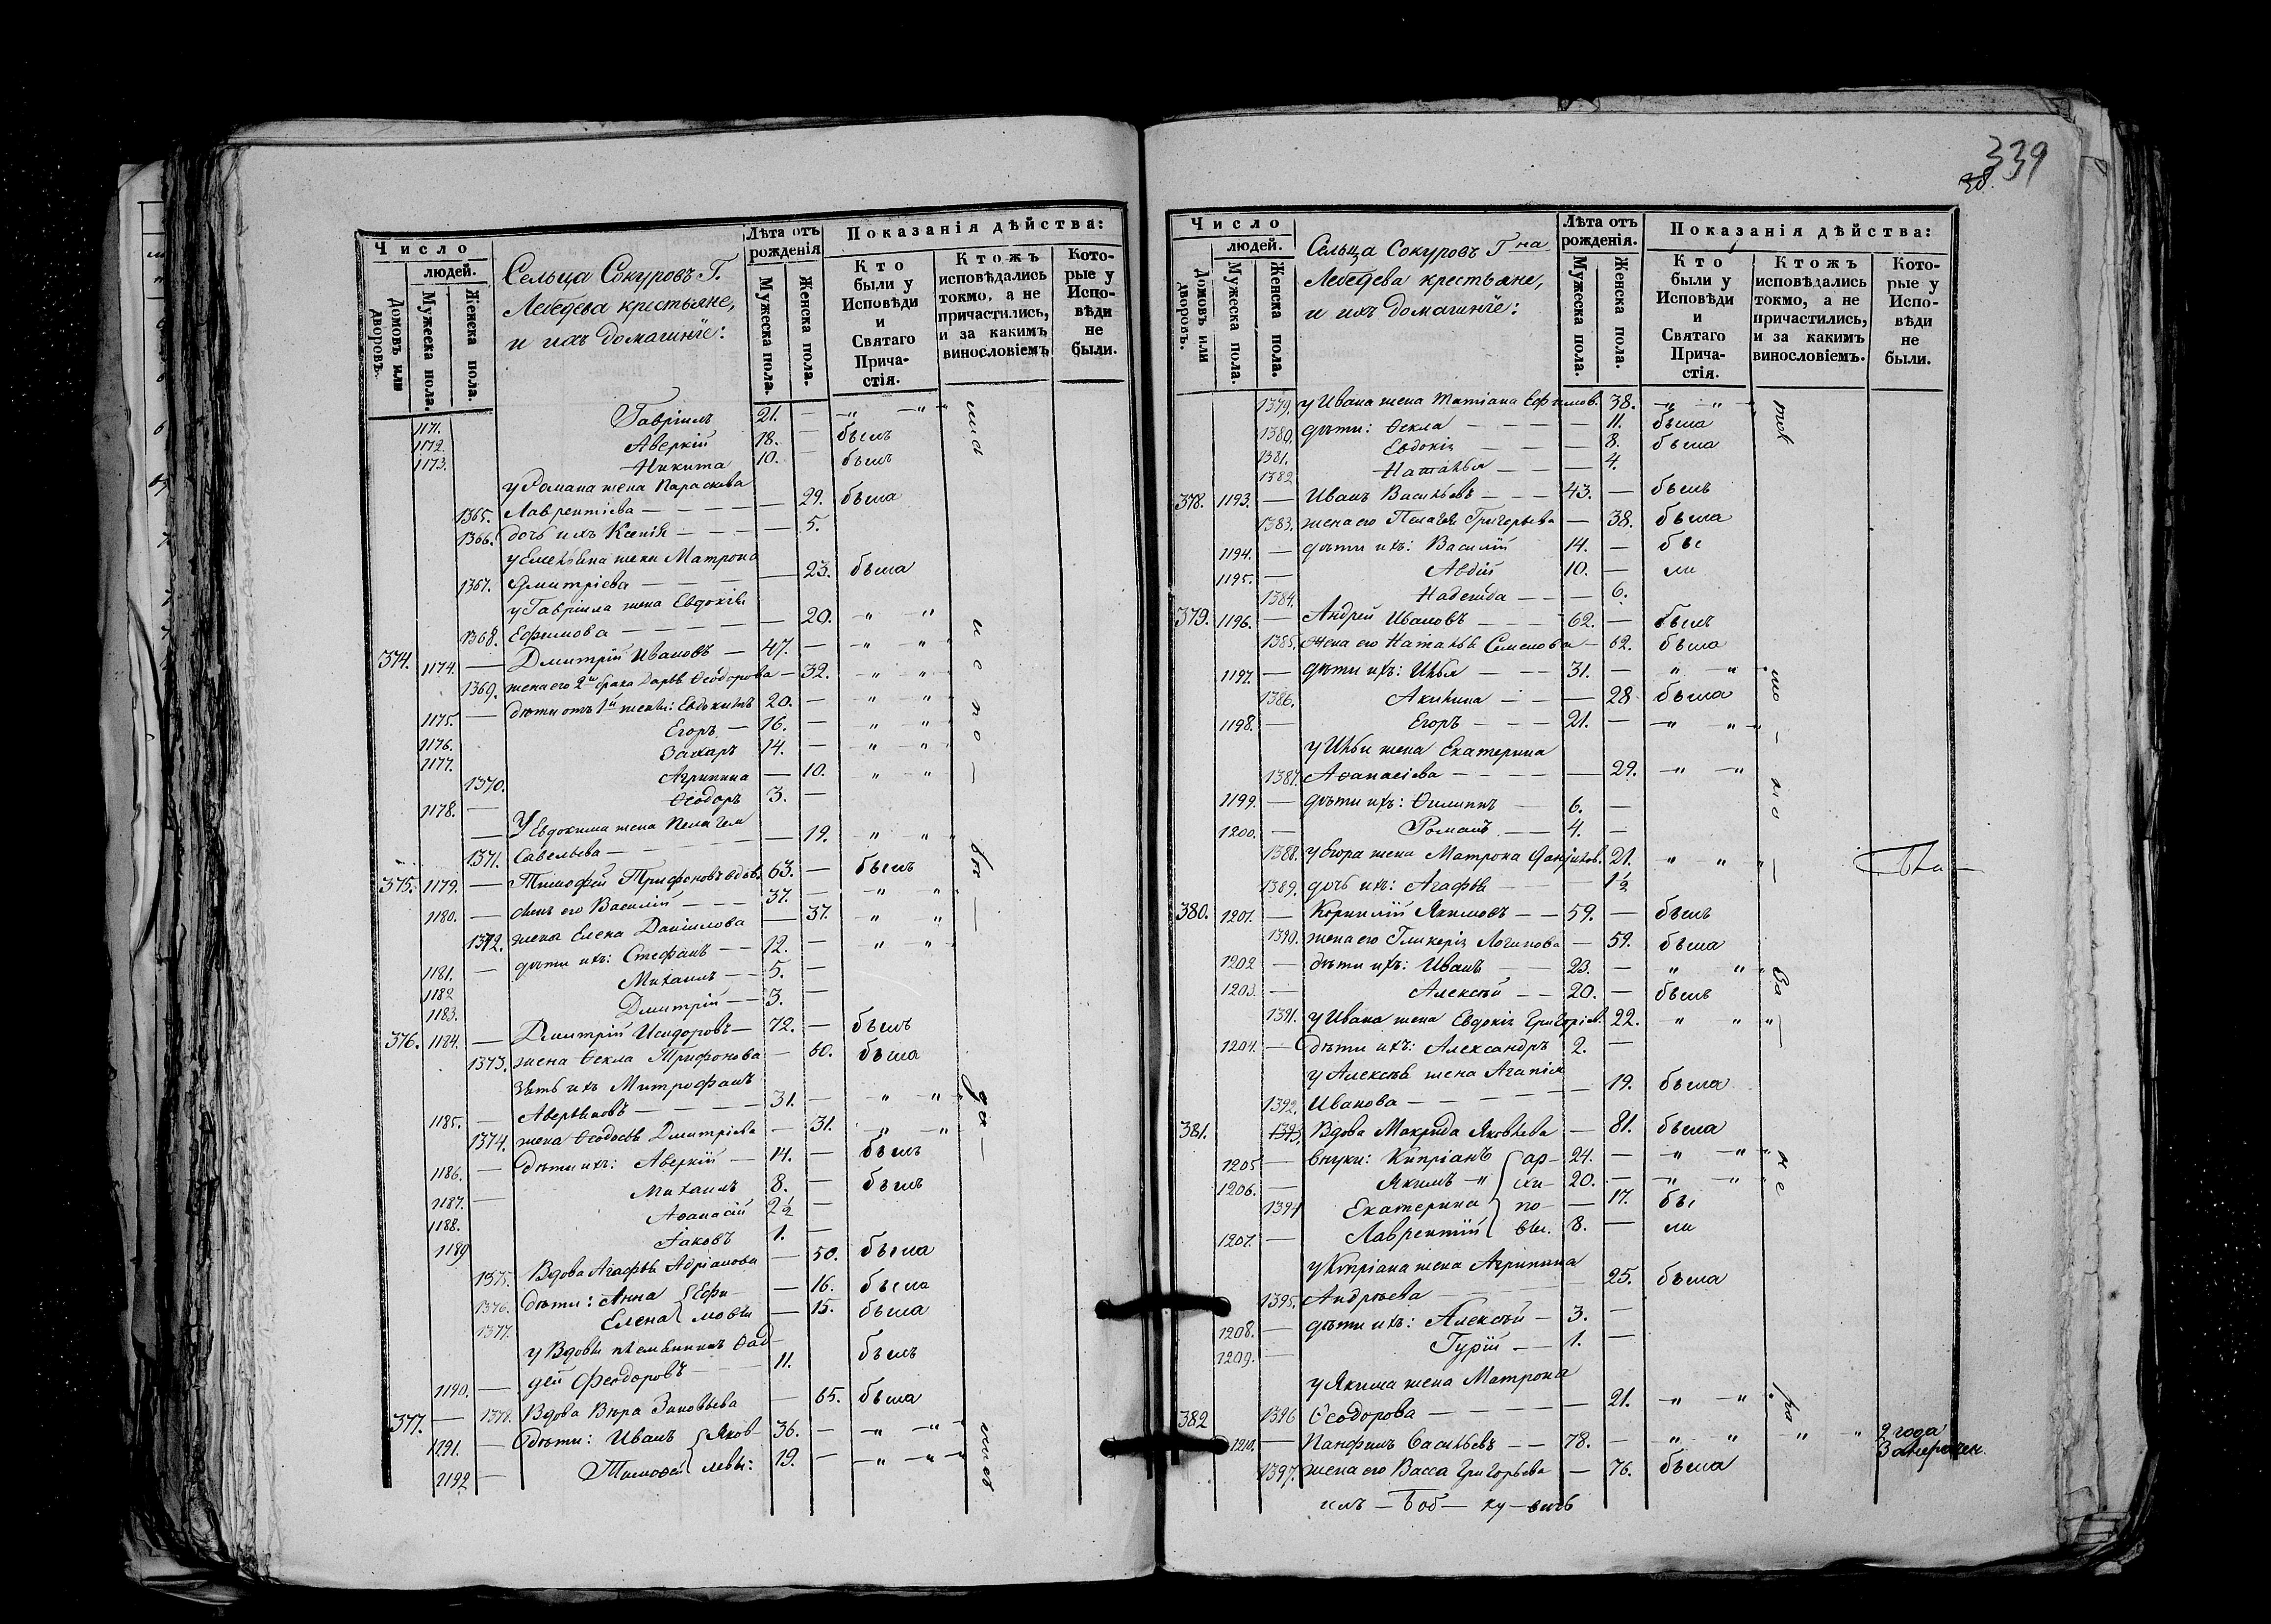 339
38.
Число
людей.
Домовъ или дворовъ.
Мужеска пола.
Женска пола.
Сельца Сокуровъ Г.
Лебедева крестьяне,
и ихъ домашніе:
Лѣта отъ рожденія
Мужеска пола.
Женска пола.
Показанія дѣйства:
Кто были у Исповѣди и Святаго Причастія.
Ктожъ исповѣдались токмо, а не причастились, и за какимъ винословіемъ
Которые у Исповѣди не были.
1171. Гавріилъ 21. — —„ —„
1172. Аверкій 18. — былъ
1173. Никита 10. — былъ
у Романа жена Параскева
1365. Лаврентіева — 29. была
1366. дочь ихъ Ксенія — 5.
жена Матрона
1367. Дмитріева — 23. была
у Гавріила жена Евдокія
1368. Ефимова — 20. „ „
374. 1174. — Дмитрій Ивановъ — 47. — „ „
1369. жена его 2го брака Дарья Ѳеодорова — 32. „ „
1175. — дѣти отъ 1й жены: Евдокимъ 20. — „ „
1176. Егоръ — 16. — „ „
1177. Захаръ 14. — „ „
1370. Агрипина — 10. „ „
1178. — Ѳеодоръ 3. —
У Евдокима жена Пелагея
1371. Савельева — 19. „ „
375. 1179. — Тимофей Трифоновъ вдов. 63. — былъ
1180. — сынъ его Василій — 37. — „ „
1372. жена Елена Даніилова — 37. „ „
1181. — дѣти ихъ: Стефанъ — 12. — „ „
1182 Михаилъ — 5. —
1183. Дмитрій — 3. —
376. 1184. — Дмитрій Исидоровъ — 72. — былъ
1373. жена Ѳекла Трифонова — 60. была
Зять ихъ Митрофанъ
1185. — Аверьяновъ — 31. — „ „
1374. жена Ѳеодосья Дмитріева — 31. „ „
1186. — Дѣти ихъ: Аверкій — 14. — былъ
1187. — Михаилъ 8. — былъ
1188. Аѳанасій 2½ —
1189 Іаковъ 1. —
1375. Вдова Агафья Адріанова — 50. была
1376. дѣти: Анна { Ефи- — 16. была
1377. Елена { мовы — 15. была
у Вдовы племянникъ Ѳад-
1190. — дей Феодоровъ — 11. былъ
377. — 1378. Вдова Вѣра Зиновьева — 65. была
1191. — Дѣти: Иванъ { Яков- 36. — „ „
1192 — Тимофей { левы: 19. — „ „
Число
людей.
Домовъ или дворовъ.
Мужеска пола.
Женска пола.
Сельца Сокуровъ Г на
Лебедева крестьяне,
и ихъ домашніе:
Лѣта отъ рожденія.
Мужеска пола.
Женска пола.
Показанія дѣйства:
Кто были у Исповѣди и Святаго Причастія.
Ктожъ исповѣдались токмо, а не причастились, и за какимъ винословіемъ.
Которые у Исповѣди не были.
1379. у Ивана жена Татіана Ефимов. 38. „ „
1380. дѣти: Ѳекла — 11. была
1381. Евдокія — 8. была
1382 Наталья — 4.
378. 1193. — Иванъ Васильевъ — 43. — былъ
1383. жена его Пелагея Григорьева — 38. была
1194. — дѣти ихъ: Василій 14. — бы
1195. — Авдій 10. — ли
1384. Надежда — 6.
379. 1196. — Андрей Ивановъ — 62. — былъ
1385. Жена его Наталья Семенова — 62. была
1197. — дѣти ихъ: Илья — 31. — „ „
1386. Акилина — 28 была
1198. — Егоръ — 21. — „ „
у Ильи жена Екатерина
1387. Аѳанасіева — 29. „ „
1199. — дѣти ихъ: Филиппъ 6. —
1200. — Романъ — 4. —
1388. у Егора жена Матрона 21. „ „
1389. дочь ихъ: Агафья — 1½
380. 1201. — Корнилій Якимовъ — 59. — былъ
1390. жена его Гликерія Логинова — 59. была
1202 — дѣти ихъ: Иванъ — 23. — „ „
1203. — Алексѣй — 20. — былъ
1391. у Ивана жена Евдокія Григоріев. 22. „ „
1204. — Дѣти ихъ: Александръ 2. —
у Алексѣя жена Агапія
1392. Иванова — 19. была
381. 1393. Вдова Макрида Яковлева — 81. была
1205 — внуки: Кипріанъ { ар- 24. — „ „
1206. — Якимъ „ { хи- 20. — „ „
1394 Екатерина { по- — 17. бы
1207. — Лаврентій { вы. 8. — ли
у Кипріана жена Агрипина
1395. Андреева — 25. была
1208. — дѣти ихъ: Алексѣй — 3. —
1209. — Гурій — 1. —
у Якима жена Матрона
1396 Ѳеодорова — 21. „ „
382 1210. — Панфилъ Васильевъ — 78. — „ „ „ „ 2 года
1397. жена его Васса Григорьева — 76. была